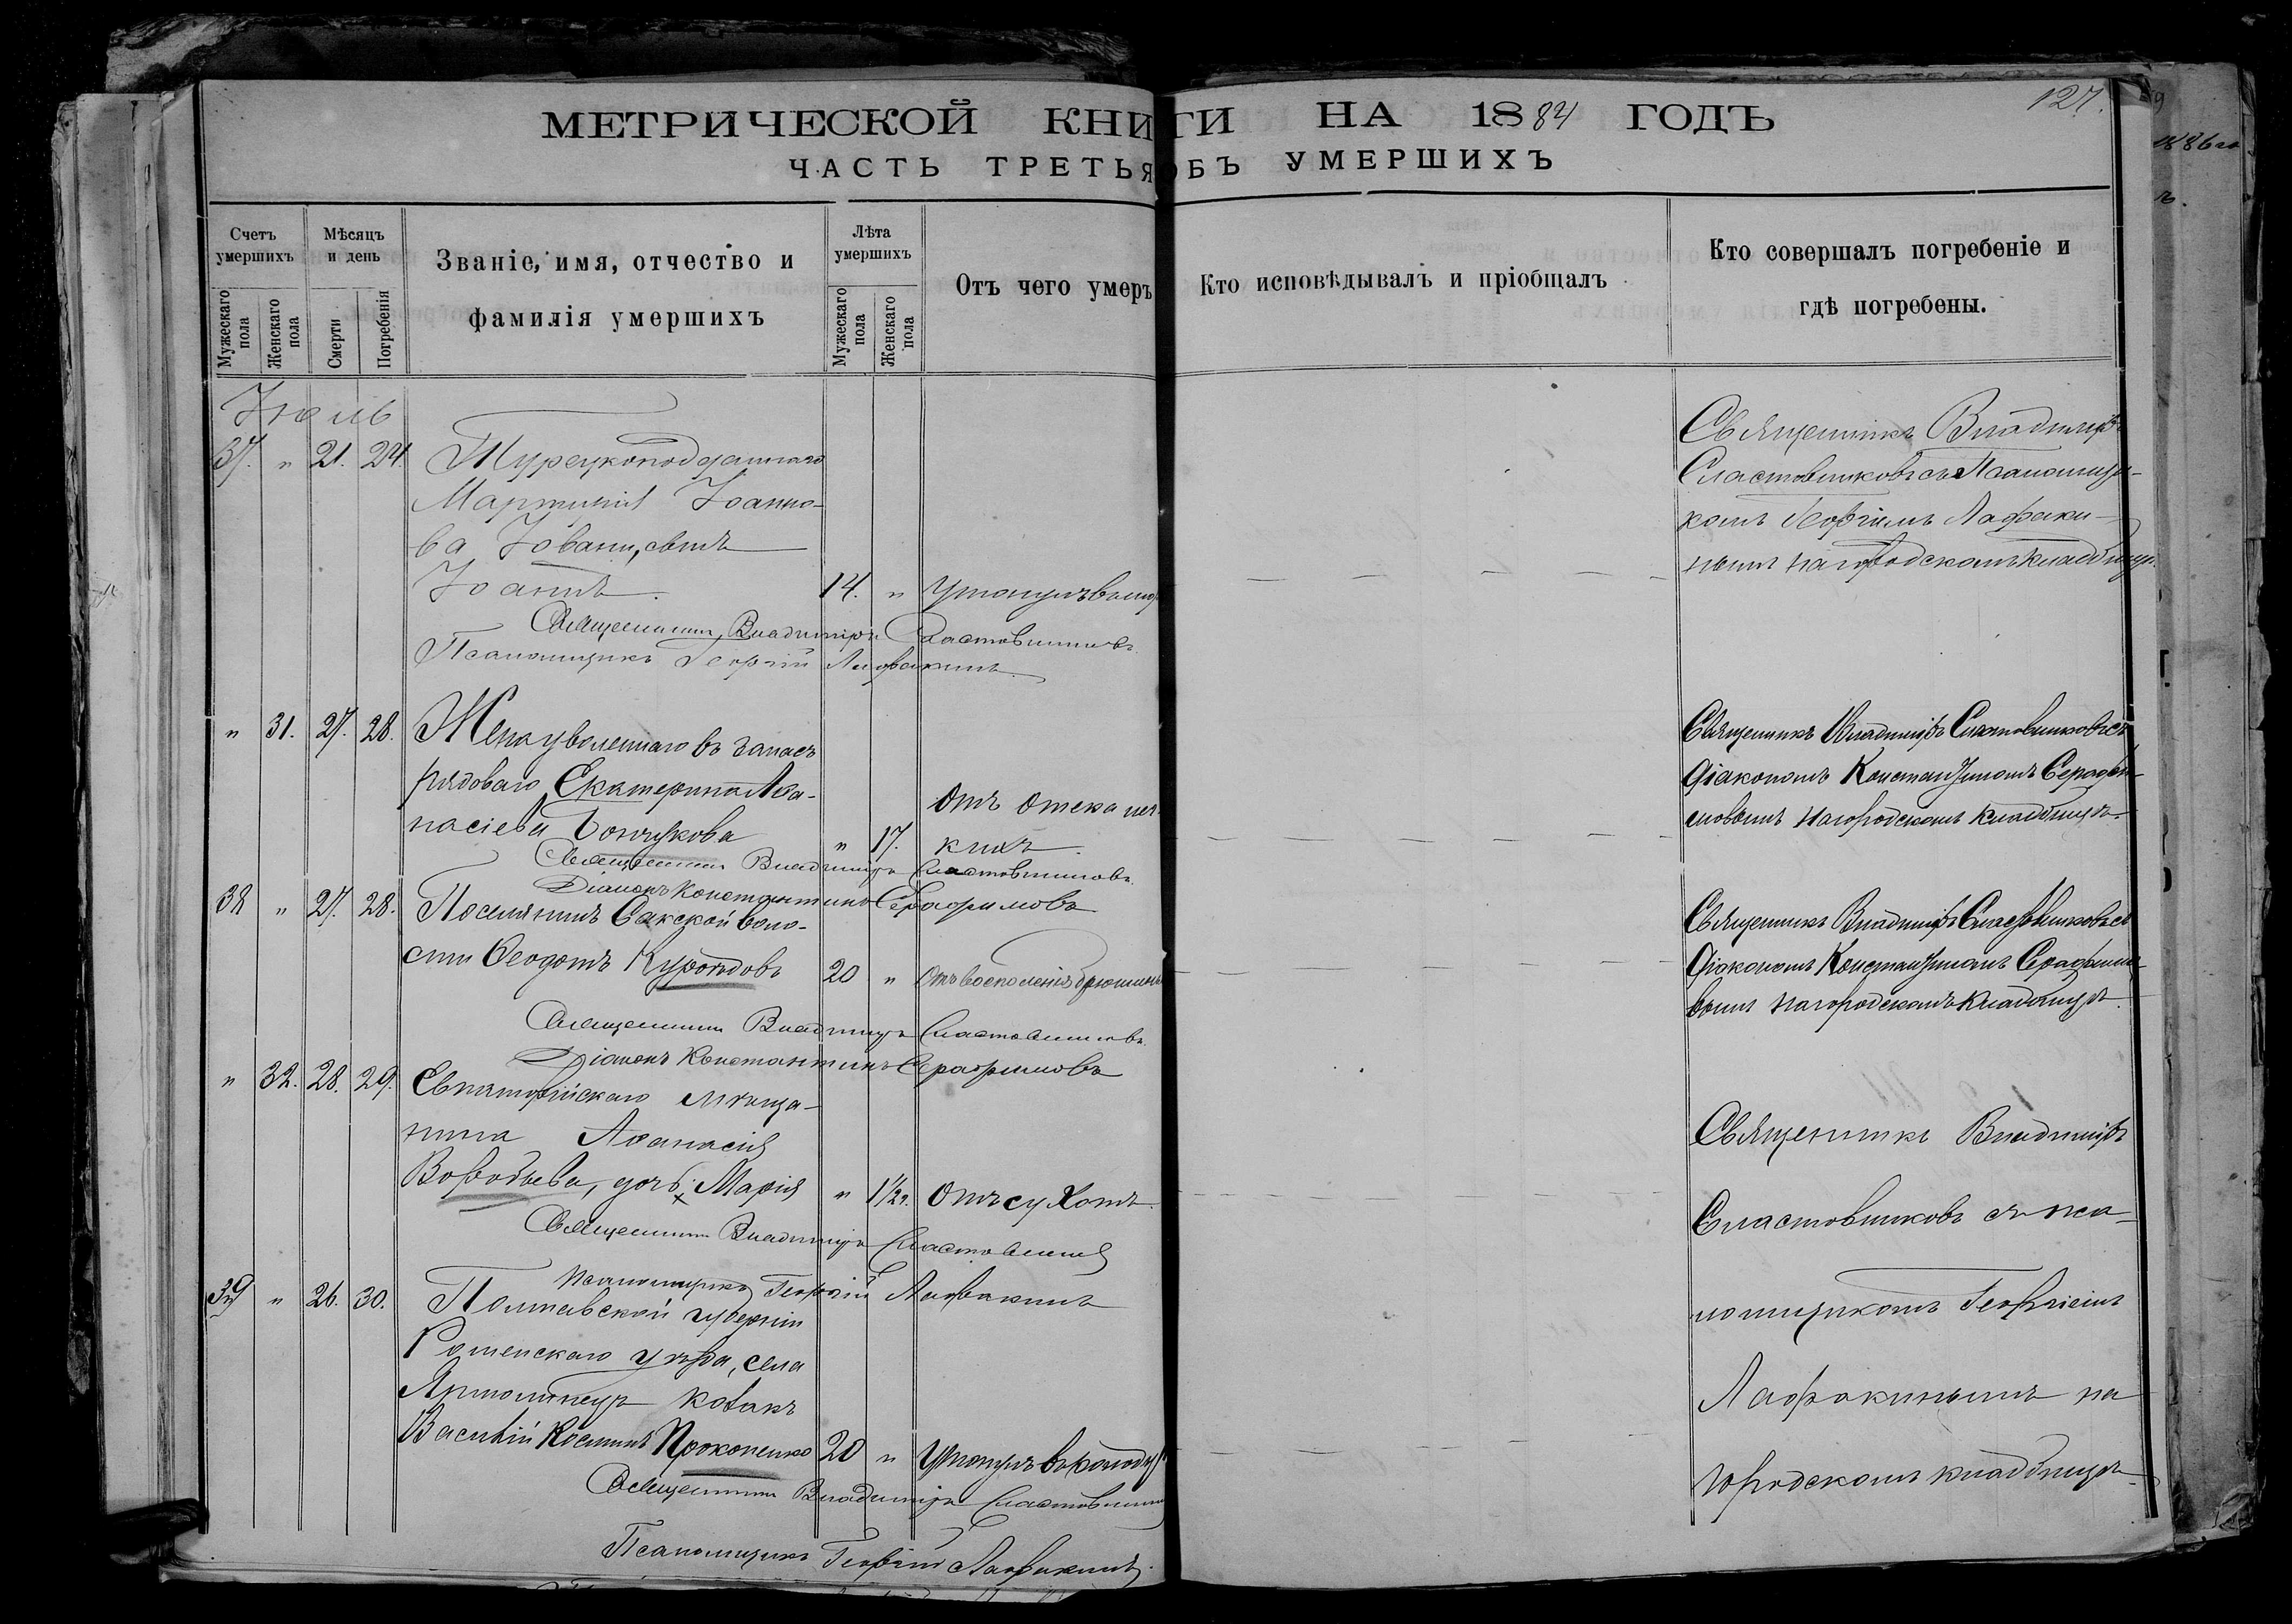 МЕТРИЧЕСКОЙ КНИГИ НА 1884 ГОДЪ
127.
ЧАСТЬ ТРЕТЬЯ ОБЪ УМЕРШИХЪ
Счетъ умершихъ
Мужескаго пола
Женскаго пола
Мѣсяцъ и день
Смерти
Погребенія
Званіе, имя, отчество и
фамилія умершихъ
Лѣта умершихъ
Мужескаго пола
Женскаго пола
Отъ чего умеръ
Кто исповѣдывалъ и пріобщалъ
Кто совершалъ погребеніе и
гдѣ погребены.
Іюль
37. " 21. 24. Турецкоподданнаго
Іоанно-
ва
Іоаннъ. 14. " Утонулъ въ
Священникъ Владиміръ
Сластовниковъ съ Псаломщи-
комъ Георгіемъ
на городскомъ кладбищѣ.
Священникъ Владиміръ Сластовниковъ.
Псаломщикъ Георгій
" 31. 27. 28. Жена уволеннаго въ запасъ
рядоваго Екатерина Аѳа-
насіева " 17. Отъ отека лег-
кихъ.
Священникъ Владиміръ Сластовниковъ съ
Діакономъ Константиномъ Серафи-
мовымъ на городскомъ кладбищѣ.
Священникъ Владиміръ Сластовниковъ.
Діаконъ Константинъ Серафимовъ
38 " 27. 28. Поселянинъ Сакской воло-
сти Ѳеодотъ 20 " Отъ воспаленія брюшины
Священникъ Владиміръ Сластовниковъ съ
Діакономъ Константиномъ Серафимо-
вымъ на городскомъ кладбищѣ.
Священникъ Владиміръ Сластовниковъ.
Діаконъ Константинъ Серафимовъ
" 32. 28. 29. Евпаторійскаго мѣща-
нина Аѳанасія
Воробьева, дочь Марія " 1½ г. Отъ сухотъ.
Священникъ Владиміръ
Сластовниковъ съ пса-
ломщикомъ Георгіемъ
на
городскомъ кладбищѣ
Священникъ Владиміръ Сластовниковъ
Псаломщикъ Георгій
39 " 26. 30. Полтавской губерніи
Роменскаго уѣзда, села
козакъ
Василій Косминъ Прокопенко 20 " Утонулъ въ колодцѣ
Священникъ Владиміръ Сластовниковъ
Псаломщикъ Георгій